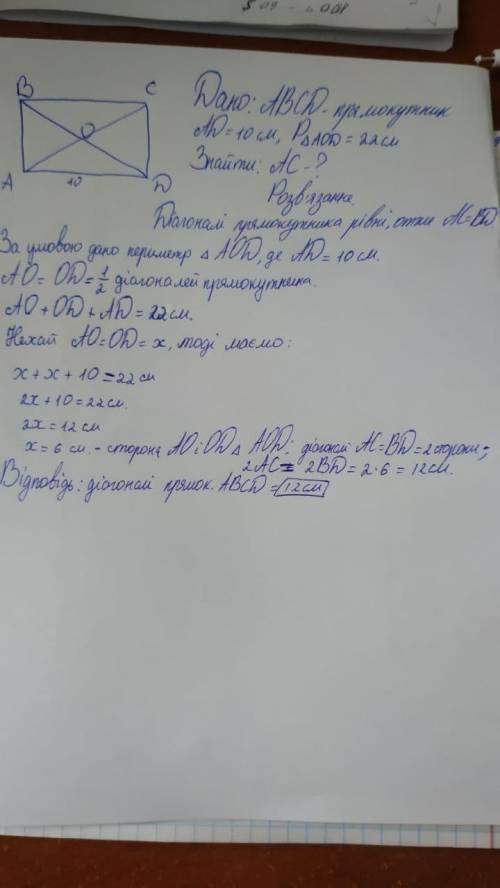 B C
O
A 10 D
Дано: ABCD - прямокутник
AD = 10 см, P△AOD = 22 см
Знайти: AC - ?
Розв'язання.
Діагоналі прямокутника рівні, отже AC=BD.
За умовою дано периметр △ AOD, де AD = 10 см.
AO = OD = 1/2 діагоналей прямокутника.
AO + OD + AD = 22 см.
Нехай AO = OD = x, тоді маємо:
x + x + 10 = 22 см
2x + 10 = 22 см.
2x = 12 см
x = 6 см. - сторона AO i OD △ AOD; діагоналі AC = BD = 2 сторони;
2AC = 2BD = 2·6 = 12 см.
Відповідь: діагоналі прямок. ABCD = 12 см